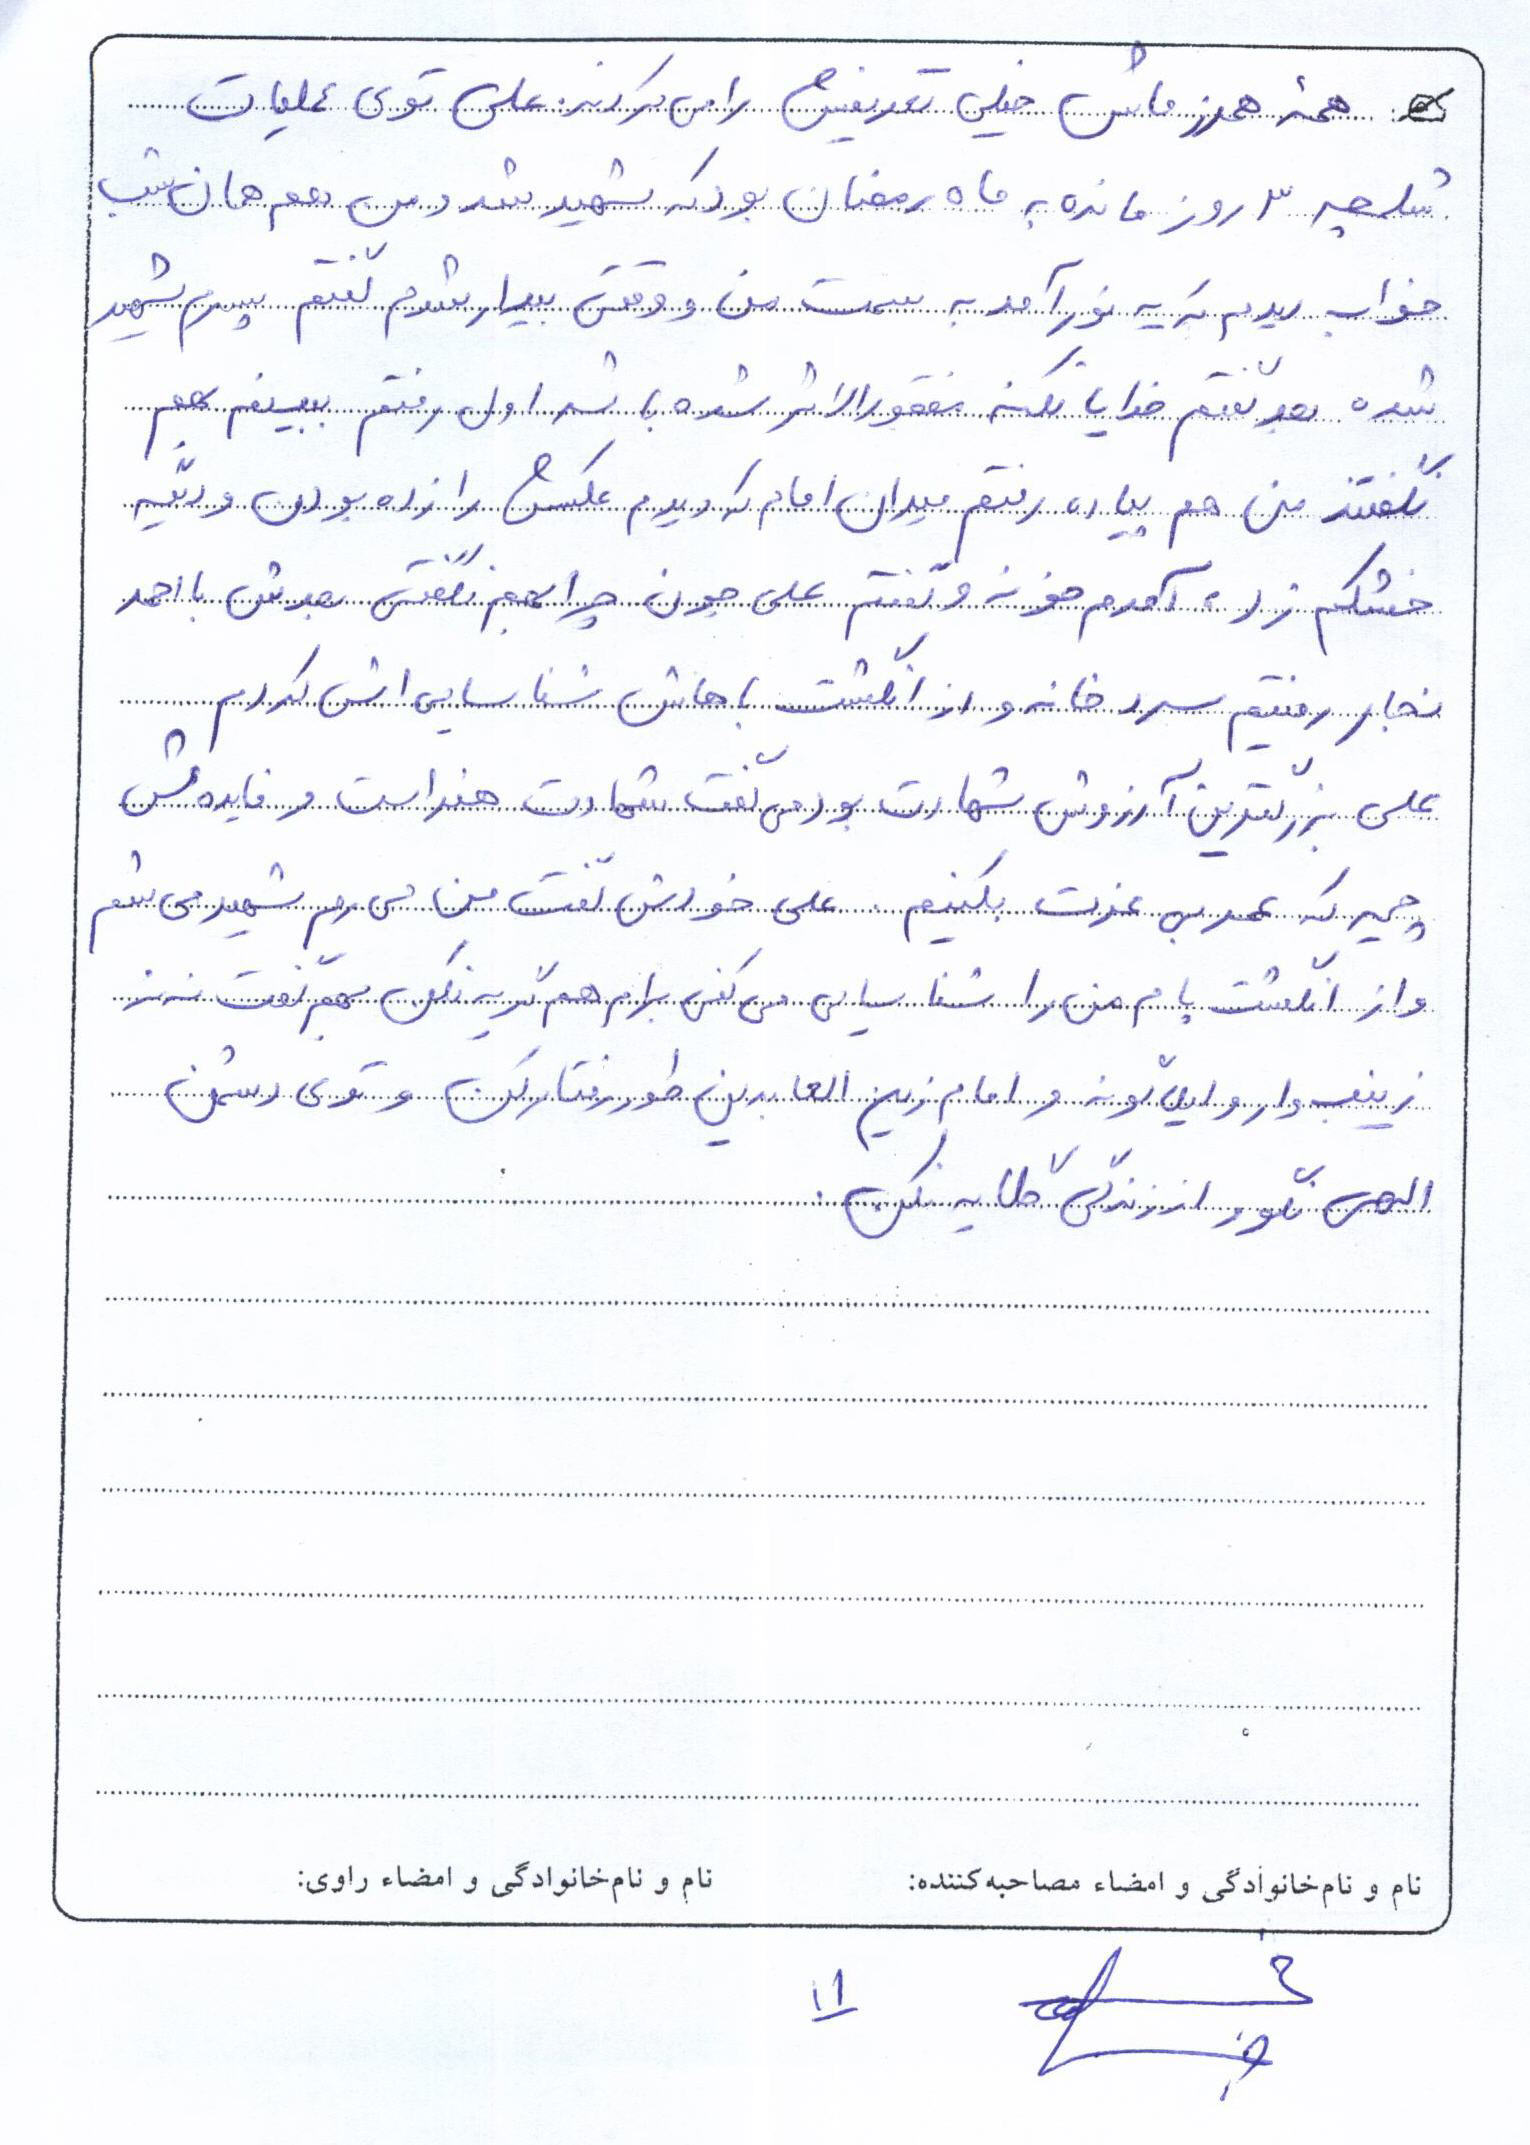 همۀ همرزماش خیلی تعریفش را می کردند. علی توی عملیات
شلمچه ۳ روز مانده به ماه رمضان بود که شهید شد و من هم همان شب
خواب دیدم که یه نور آمد به سمت من و وقتی بیدار شدم گفتم پسرم شهید
شده بعد گفتم خدایا نکنه مفقودالاثر شده باشد اول رفتم ببینم بهم
نگفتند من هم پیاده رفتم میدان امام که دیدم عکسش را زده بودن و دیگه
خشکم زد، آمدم خونه و گفتم علی جون چرا بهم نگفتی بعدش با احمد
نجار رفتیم سردخانه و از انگشت پاهاش شناسایی اش کردم
علی بزرگترین آرزوش شهادت بود می گفت شهادت هنر است و فایده ش
چیه که عمر بی عزت بکنیم. علی خودش گفت من می رم شهید می شم
و از انگشت پام من را شناسایی می کنی برام هم گریه نکن بهم گفت ننه
زینب وار و لیلا گونه و امام زین العابدین طور رفتار کن و توی دشمن
الهی نگو و از زندگی گلایه نکن.
نام و نام‌خانوادگی و امضاء مصاحبه‌کننده:
نام و نام‌خانوادگی و امضاء راوی:
۱۱